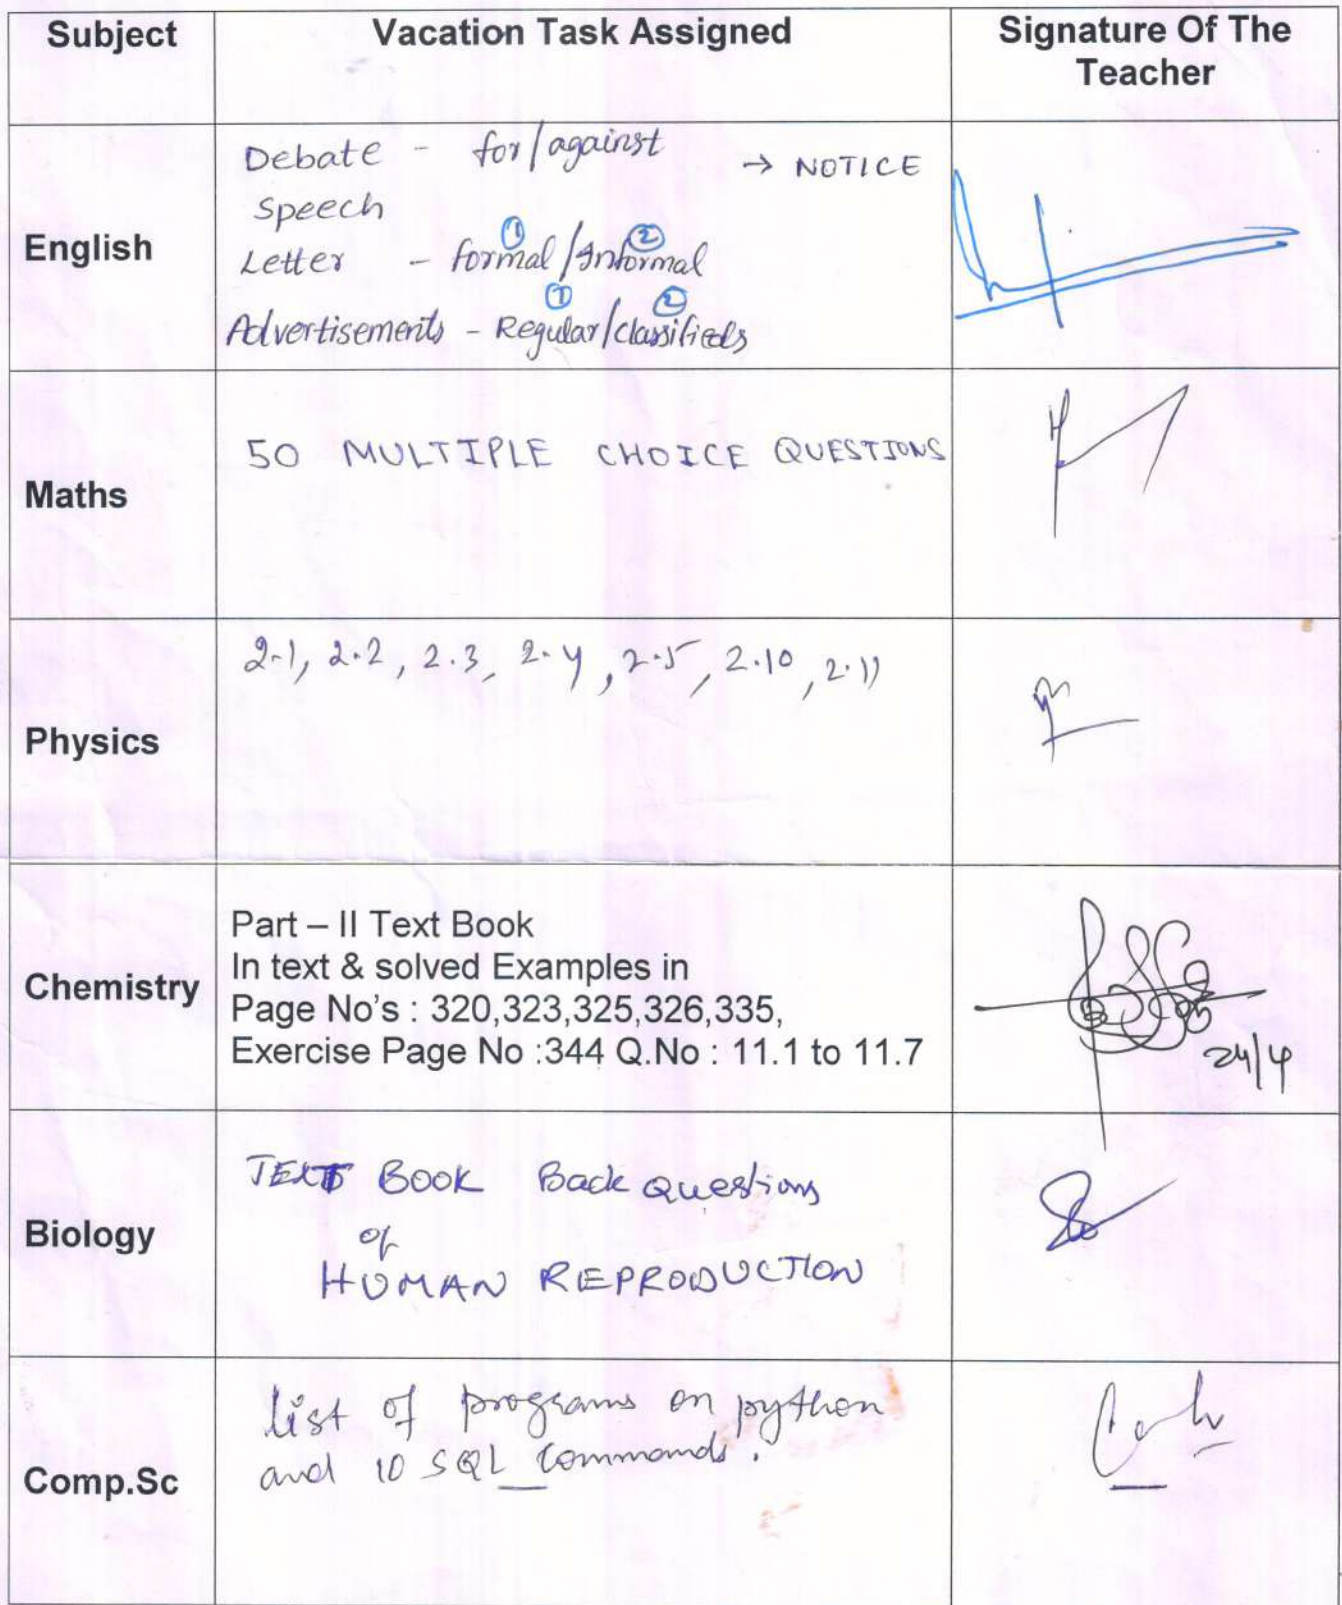 Subject
Vacation Task Assigned
Signature Of The
Teacher
English
Debate - for/against → NOTICE
Speech
Letter - formal ①/Informal ②
Advertisements - Regular ①/classifieds ②
Maths
50 MULTIPLE CHOICE QUESTIONS
Physics
2.1, 2.2, 2.3, 2.4, 2.5, 2.10, 2.11
Chemistry
Part – II Text Book
In text & solved Examples in
Page No's : 320,323,325,326,335,
Exercise Page No :344 Q.No : 11.1 to 11.7
24/4
Biology
TEXT BOOK Back Questions
of
HUMAN REPRODUCTION
Comp.Sc
list of programs on python
and 10 SQL commands.